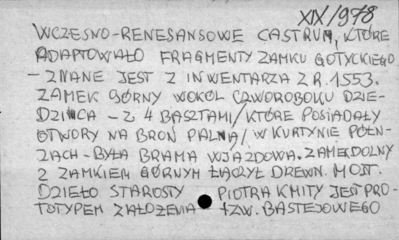 XIX/978
WCZESNO-RENESANSOWE CASTRUM, KTÓRE
ADAPTOWAŁO FRAGMENTY ZAMKU GOTYCKIEGO
- ZNANE JEST Z INWENTARZA Z R. 1553.
ZAMEK GÓRNY WOKÓŁ CZWOROBOKU DZIE-
DZIŃCA - Z 4 BASZTAMI/KTÓRE POSIADAŁY
OTWORY NA BROŃ PALNĄ/W KURTYNIE PÓŁN-
ZACH - BYŁA BRAMA WJAZDOWA. ZAMEK DOLNY
Z ZAMKIEM GÓRNYM ŁĄCZYŁ DREWN. MOST.
DZIEŁO STAROSTY PIOTRA KMITY JEST PRO-
TOTYPEM ZAŁOŻENIA TZW. BASTEJOWEGO